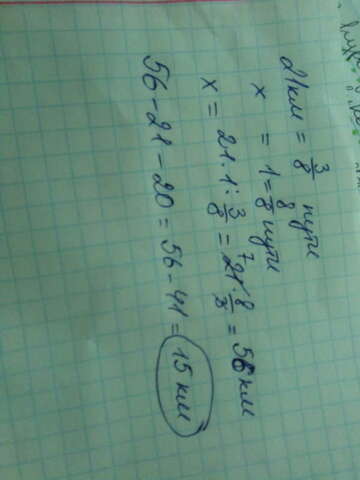 21км = 3/8 пути
x = 1 = 8/8 пути
x = 21 · 1 : 3/8 = 21 · 8/3 = 56 км
56 - 21 - 20 = 56 - 41 = 15 км